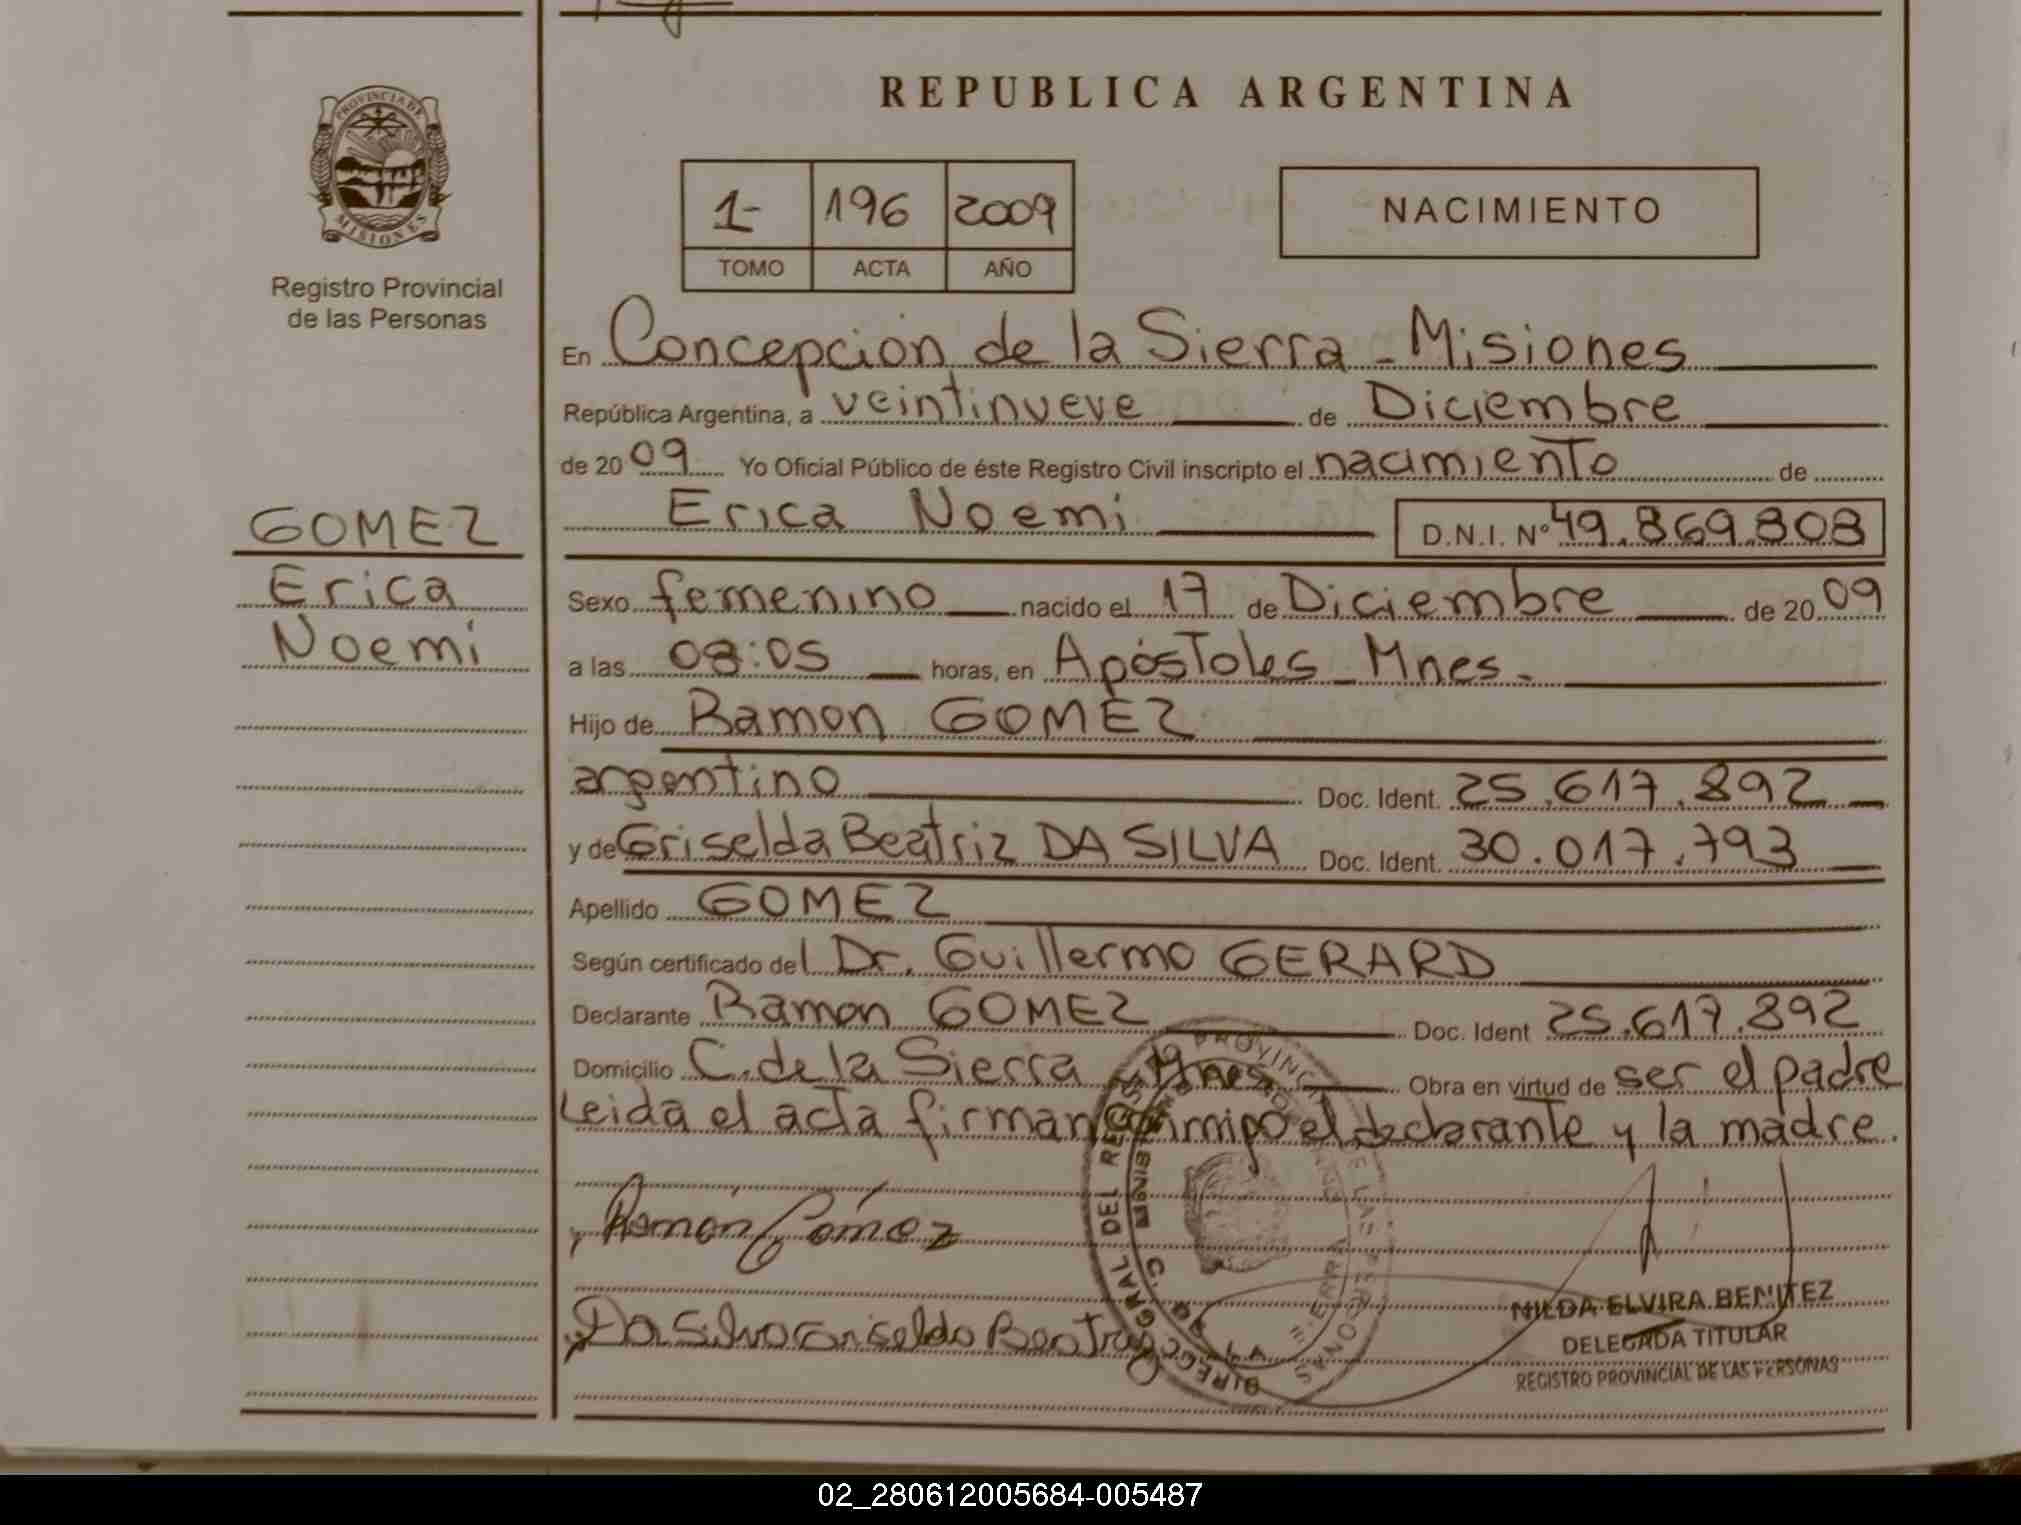 REPUBLICA ARGENTINA
PROVINCIA DE
MISIONES
Registro Provincial
de las Personas
1- 196 2009
TOMO ACTA AÑO
NACIMIENTO
En Concepción de la Sierra - Misiones
República Argentina, a veintinueve de Diciembre
de 2009 Yo Oficial Público de éste Registro Civil inscripto el nacimiento de
Erica Noemi D.N.I. Nº 49.869.808
GOMEZ
Erica
Noemi
Sexo femenino nacido el 17 de Diciembre de 2009
a las 08:05 horas, en Apóstoles - Mnes -
Hijo de Ramon GOMEZ
argentino Doc. Ident. 25.617.892
y de Griselda Beatriz DA SILVA Doc. Ident. 30.017.793
Apellido GOMEZ
Según certificado del Dr. Guillermo GERARD
Declarante Ramon GOMEZ Doc. Ident 25.617.892
Domicilio C. de la Sierra Mnes Obra en virtud de ser el padre
Leida el acta firman conmigo el declarante y la madre.
Ramón Gómez
Da Silva Griselda Beatriz
NILDA ELVIRA BENITEZ
DELEGADA TITULAR
REGISTRO PROVINCIAL DE LAS PERSONAS
02_280612005684-005487